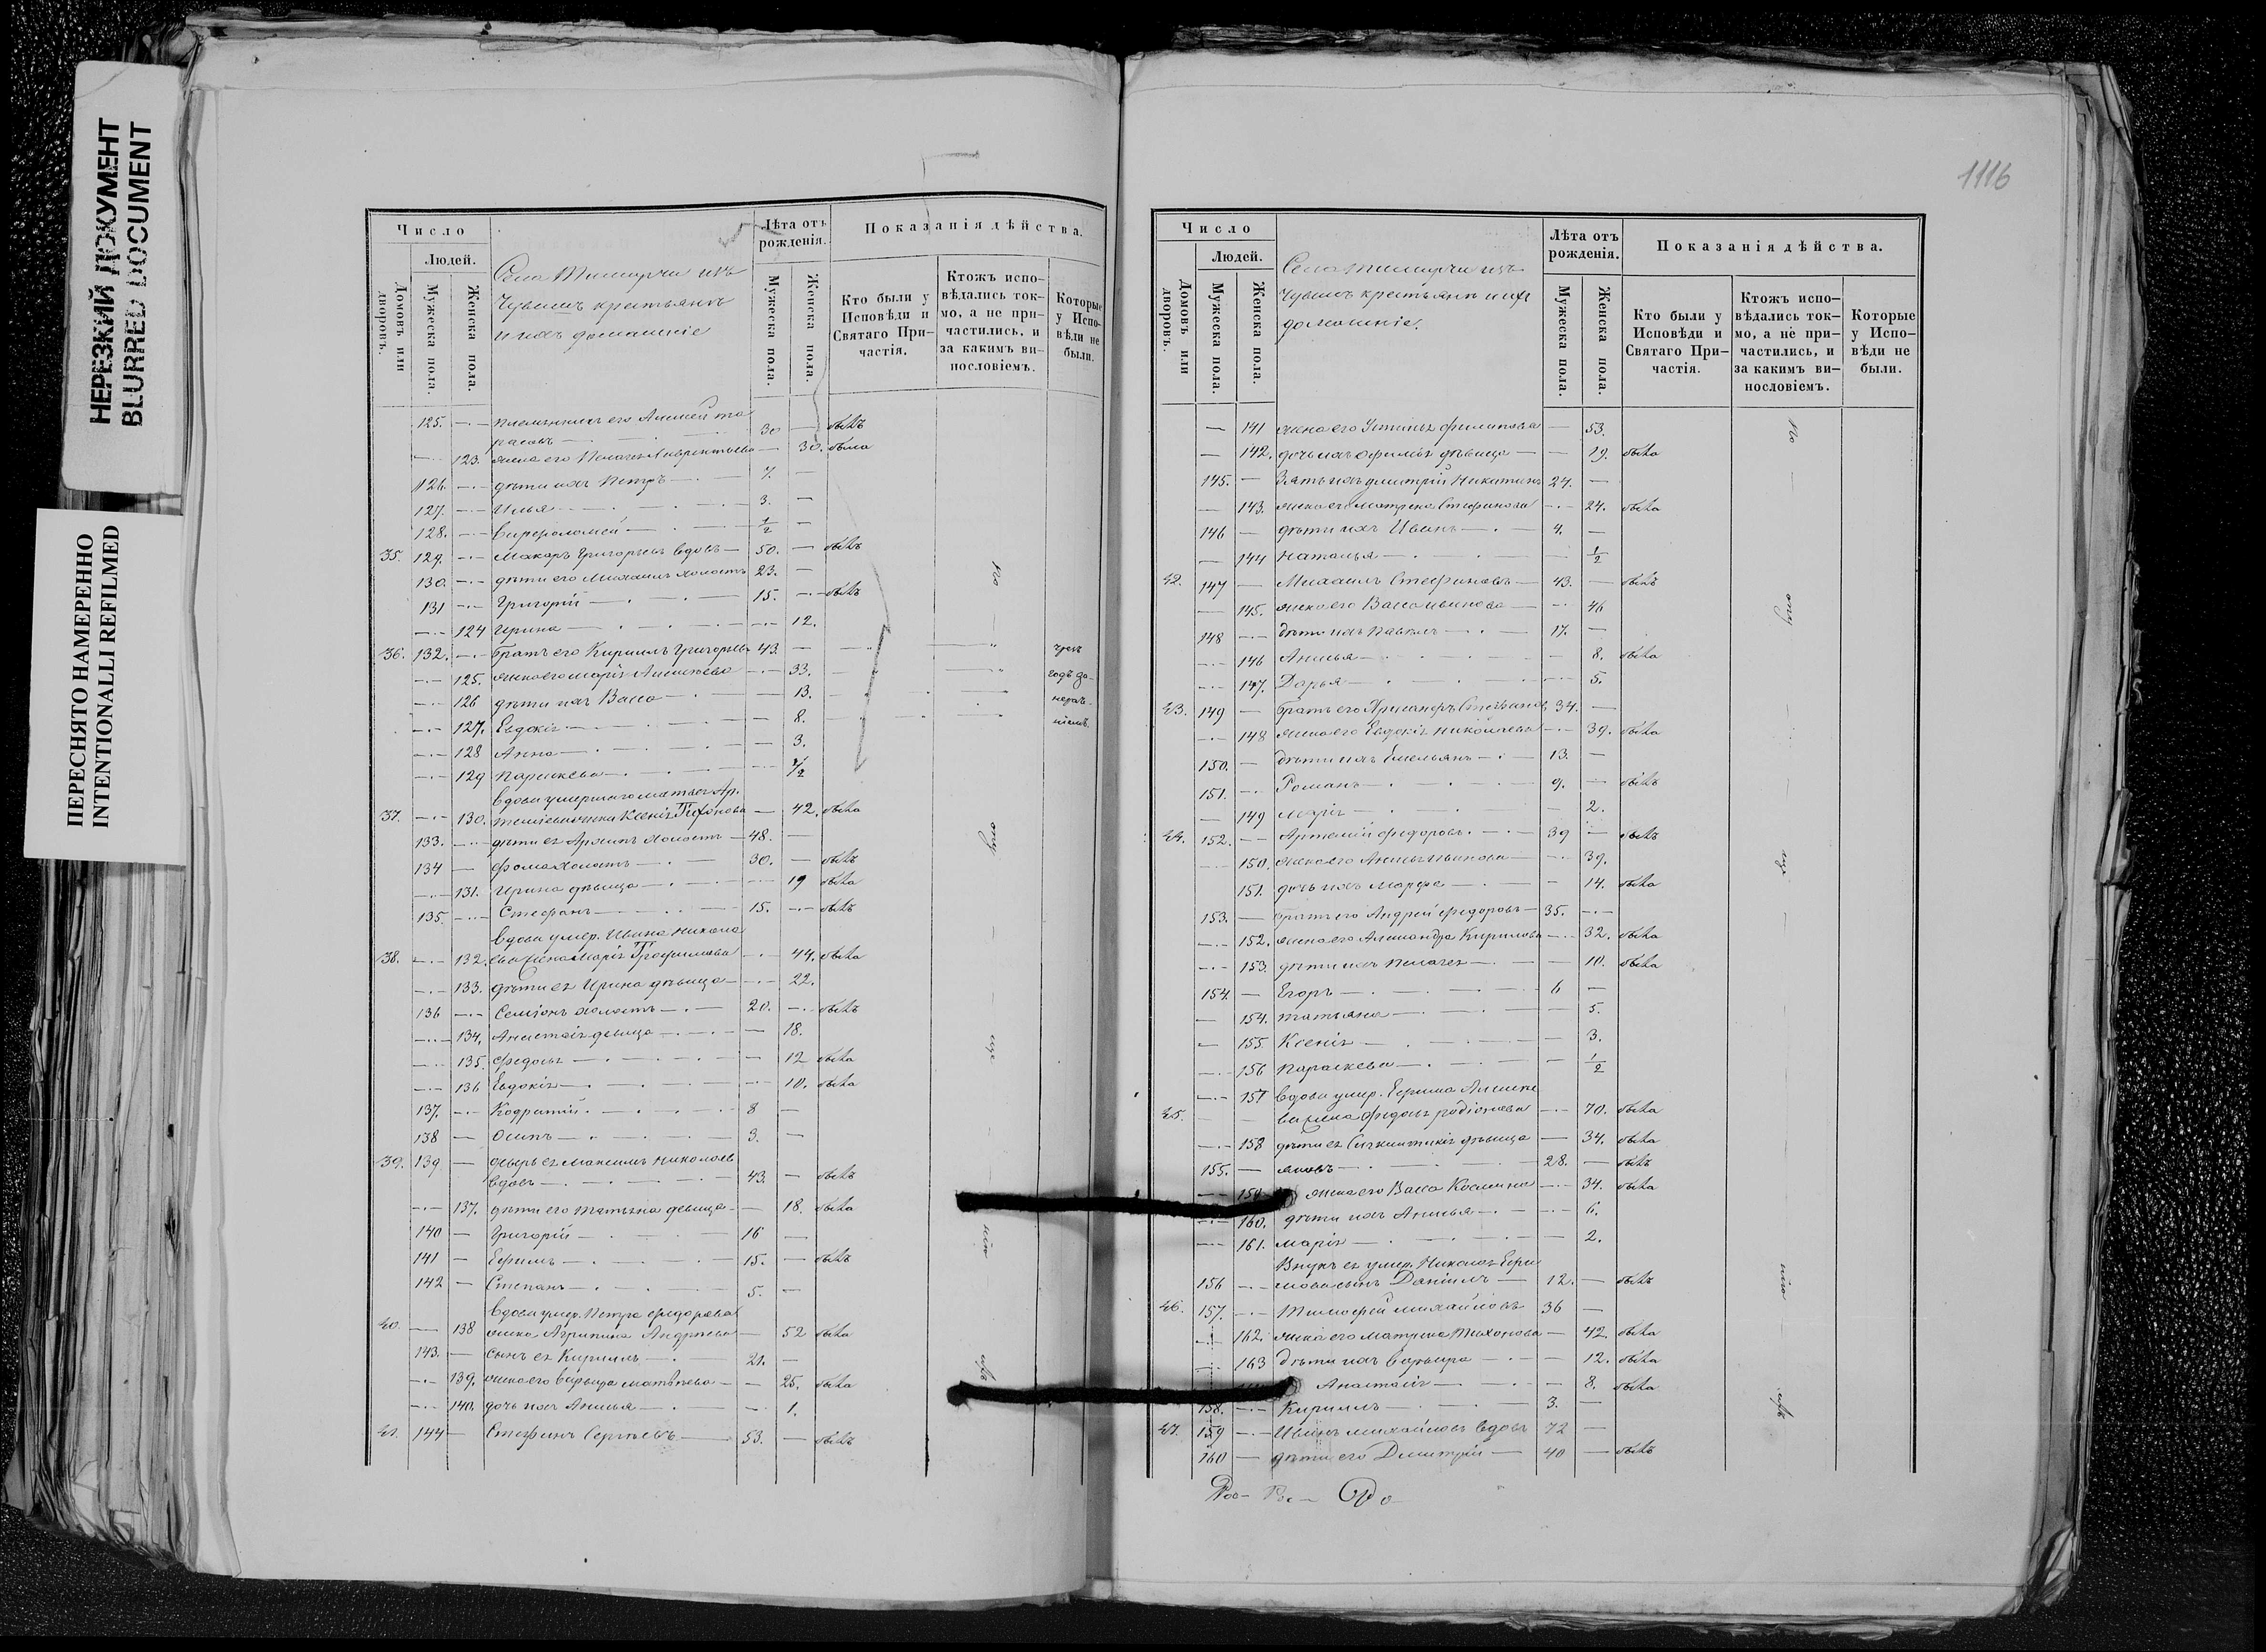 НЕРЕЗКИЙ ДОКУМЕНТ
BLURRED DOCUMENT
ПЕРЕСНЯТО НАМЕРЕННО
INTENTIONALLI REFILMED
Число
Людей.
Домовъ или дворовъ.
Мужеска пола.
Женска пола.
Села Тимирчи изъ
Чувашъ крестьянъ
и ихъ домашніе
Лѣта отъ рожденія.
Мужеска пола.
Женска пола.
Показанія дѣйства.
Кто были у Исповѣди и Святаго При-частія.
Ктожъ испо-вѣдались ток-мо, а не при-частились, и за какимъ ви-нословіемъ.
Которые у Испо-вѣди не были.
125. племянникъ его Алексей та
расовъ 30 былъ
123. жена его Пелагея Лаврентьева 30. была
126. дѣти ихъ Петръ 7.
127. Илья 3.
128. Варфоломей ½
35. 129. Макаръ Григорьевъ вдовъ 50. былъ
130. дѣти его Михаилъ холостъ 23.
131 Григорій 15. былъ
124 Ирина 12.
36. 132. братъ его Кириллъ Григорьевъ 43.
125. жена его Марія Алексѣева 33.
126 дѣти ихъ Васса 13.
127. Евдокія 8.
128 Анна 3.
129 Параскева ½
вдова умершаго
37. 130. Ксенія 42. была
133. дѣти ея Архипъ холостъ 48.
134 Фома холостъ 30. былъ
131. Ирина дѣвица 19 была
135. Стефанъ 15. былъ
вдова умер. Ивана Никола
38. 132. ева жена Марія Трофимова 44. была
133. дѣти ея Ирина дѣвица 22.
136 Семіонъ холостъ 20. былъ
134. Анастасія девица 18.
135. Федосья 12 была
136 Евдокія 10. была
137. Кодратій 8
138 Осипъ 3.
39. 139 деверь ея Максимъ Николаевъ
вдовъ 43. былъ
137. дѣти его Татьяна девица 18. была
140 Григорій 16
141 Ефимъ 15. былъ
142 Степанъ 5.
вдова умер. Петра Федорова
40. 138 жена Агрипина Андреева 52 была
143. сынъ ея Кириллъ 21.
139. жена его Варвара Матвѣева 25. была
140. дочь ихъ Анисья 1.
41. 144 Стефанъ Сергѣевъ 53. былъ
чрез
годъ по
1116
Число
Людей.
Домовъ или дворовъ.
Мужеска пола.
Женска пола.
Села Тимирчи изъ
Чувашъ крестьянъ и ихъ
домашніе.
Лѣта отъ рожденія.
Мужеска пола.
Женска пола.
Показанія дѣйства.
Кто были у Исповѣди и Святаго При-частія.
Ктожъ испо-вѣдались ток-мо, а не при-частились, и за какимъ ви-нословіемъ.
Которые у Испо-вѣди не были.
141 жена его Устинья Филипова 53.
142. дочь ихъ Афимья дѣвица 19. была
145. Зять ихъ Димитрій Никитинъ 24.
143. жена его Матрена Стефанова 24. была
146 дѣти ихъ Иванъ 4.
144 Наталья ½
42. 147 Михаилъ Стефановъ 43. былъ
145. жена его Васса Иванова 46
148 дѣти ихъ Павелъ 17.
146 Анисья 8. была
147. Дарья 5.
43. 149 братъ его Стефановъ 34.
148 жена его Евдокія Николаева 39. была
150. дѣти ихъ Емельянъ 13.
151. Романъ 9. былъ
149 Марія 2.
44. 152. Артемій Федоровъ 39 былъ
150. жена его Анисья Иванова 39.
151. дочь ихъ Марфа 14. была
153. братъ его Андрей Федоровъ 35.
152. жена его Александра Кирилова 32. была
153. дѣти ихъ Пелагея 10. была
154. Егоръ 6
154. Татьяна 5.
155. Ксенія 3.
156 Параскева ½
157 вдова умер. Ефима Алексе
45. ева жена Федосья Родіонова 70. была
158 дѣти ея дѣвица 34. была
155. Яковъ 28. былъ
159 жена его Васса Космина 34. была
160. дѣти ихъ Анисья 6.
161. Марія 2.
Внукъ ея умер. Николая Ефи
156 мова сынъ Даніилъ 12. былъ
46. 157. Тимофей Михайловъ 36
162. жена его Матрена Тихонова 42. была
163 дѣти ихъ Варвара 12. была
Анастасія 8. была
158. Кириллъ 3.
47. 159 Иванъ Михайловъ вдовъ 72
160 дѣти его Димитрій 40 былъ